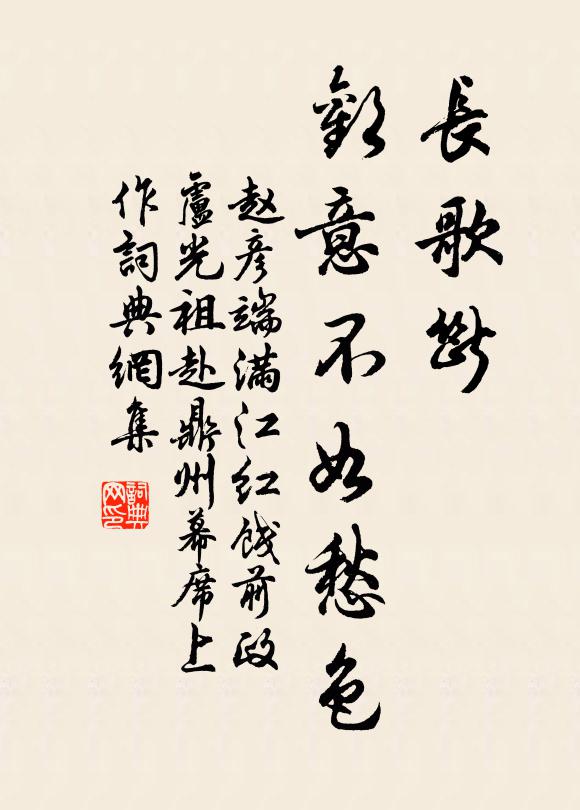 長歌斷
歡意不如愁色
赵彦端滿江红餞前政
盧光祖赴鼎州幕席上
作詞典網集
詞典
网印